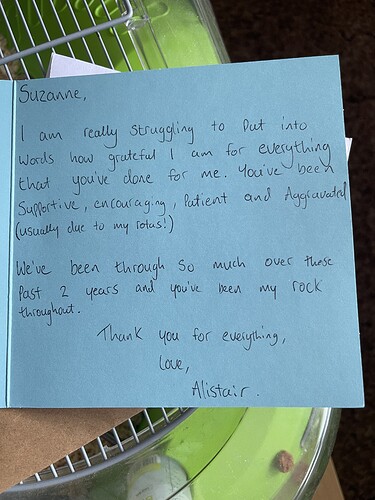 Suzanne,
I am really struggling to put into
words how grateful I am for everything
that you've done for me. You've been
Supportive, encouraging, Patient and Aggravated
(usually due to my rotas!)
We've been through so much over these
Past 2 years and you've been my rock
throughout.
Thank you for everything,
love,
Alistair.